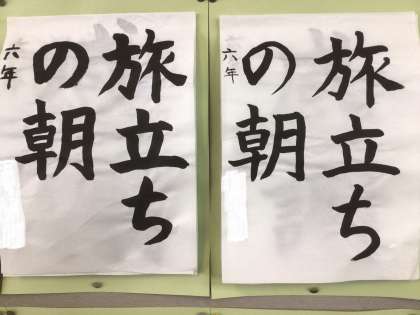 旅立ち
の朝
六年
旅立ち
の朝
六年